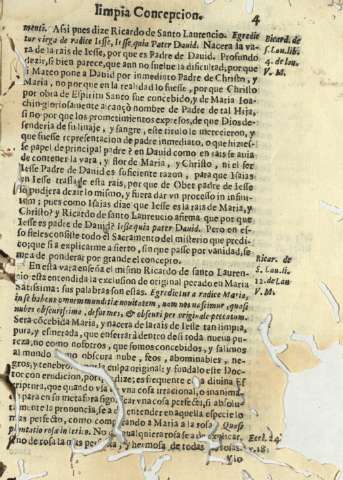 limpia Concepcion. 4
menti. Assi pues dize Ricardo de Santo Laurencio. Egredie
tur virga de radice Iesse, Iesse, quia Pater Dauid. Nacera la va
ra de la rais de Iesse, por que es Padre de Dauid. Profundo
dezir, si bien parece, que aun no suelue la dificultad, por que
i Mateo pone a Dauid por inmediato Padre de Christo, y
Maria, no por que en la realidad lo fuesse, por que Christo
por obra de Espiritu Santo fue concebido, y de Maria Ioa-
chin gloriosamente alcançò nombre de Padre de tal Hija,
si no por que los prometimientos expresos, de que Dios de-
senderia de su linaje, y sangre, este titulo le merecieron, y
que fuesse representacion de padre inmediato, o que hiziel-
se papel de principal padre? en Dauid como en rais se auia
de contener la vara, y flor de Maria, y Christo, ni el ser
Iesse Padre de Dauid es suficiente razon, para que Isaias
en Iesse traslade esta rais, por que de Obet padre de Iesse
pudiera dezir lo mismo, y fuera dar vn processo in infini-
tum; pues como Isaias dize que Iesse es la rais de Maria, y
Christo? y Ricardo de santo Laurencio afirma que por que
Iesse es padre de Dauid? Iesse quia pater Dauid. Pero en es-
so fieles consiste todo el Sacramento del misterio que predi-
co; que si a explicarme a sierto, sin que passe por vanidad, se
me a de ponderar por grande el concepto.
En esta vara enseña el mismo Ricardo de santo Lauren-
cio esta entendida la exclusion del original pecado en Maria
Santissima: sus palabras son estas. Egredietur a radice Maria,
in se habens omnem munditiæ nouitatem, nem nos nascimur, quasi
nubes obscurissima, deformes, & obscuri per originale peccatum.
Sera cōcebida Maria, y nacera de la rais de Iesse tan limpia,
pura, y esmerada, que enserrarà dentro de si toda nueua pu-
reza, no como nosotros, que somos concebidos, y salimos
al mundo como obscura nube, feos, abominables, ne-
gros, y tenebrosos por la culpa original: y fundalo este Doc-
tor con erudicion, por que dize; es frequente en la diuina Es
criptura, que quando vna cosa irracional, o inanima
para en su metafora significar vna cosa perfecta, si absolu
tamente la pronuncia, se a de entender en aquella especie lo
mas perfecto, como comparando a Maria a la rosa. Quasi
plantatio rosæ in Iericó. No de qualquiera rosa se a de explicar,
sino de rosa la mas perfecta, y hermosa de todas las rosas.
Vio
Ricard. de
S. Lau. lib.
4. de lau.
V. M.
Ricar. de
S. Lau. li.
12. de lau
V. M.
Eccl. 24.
v. 18.